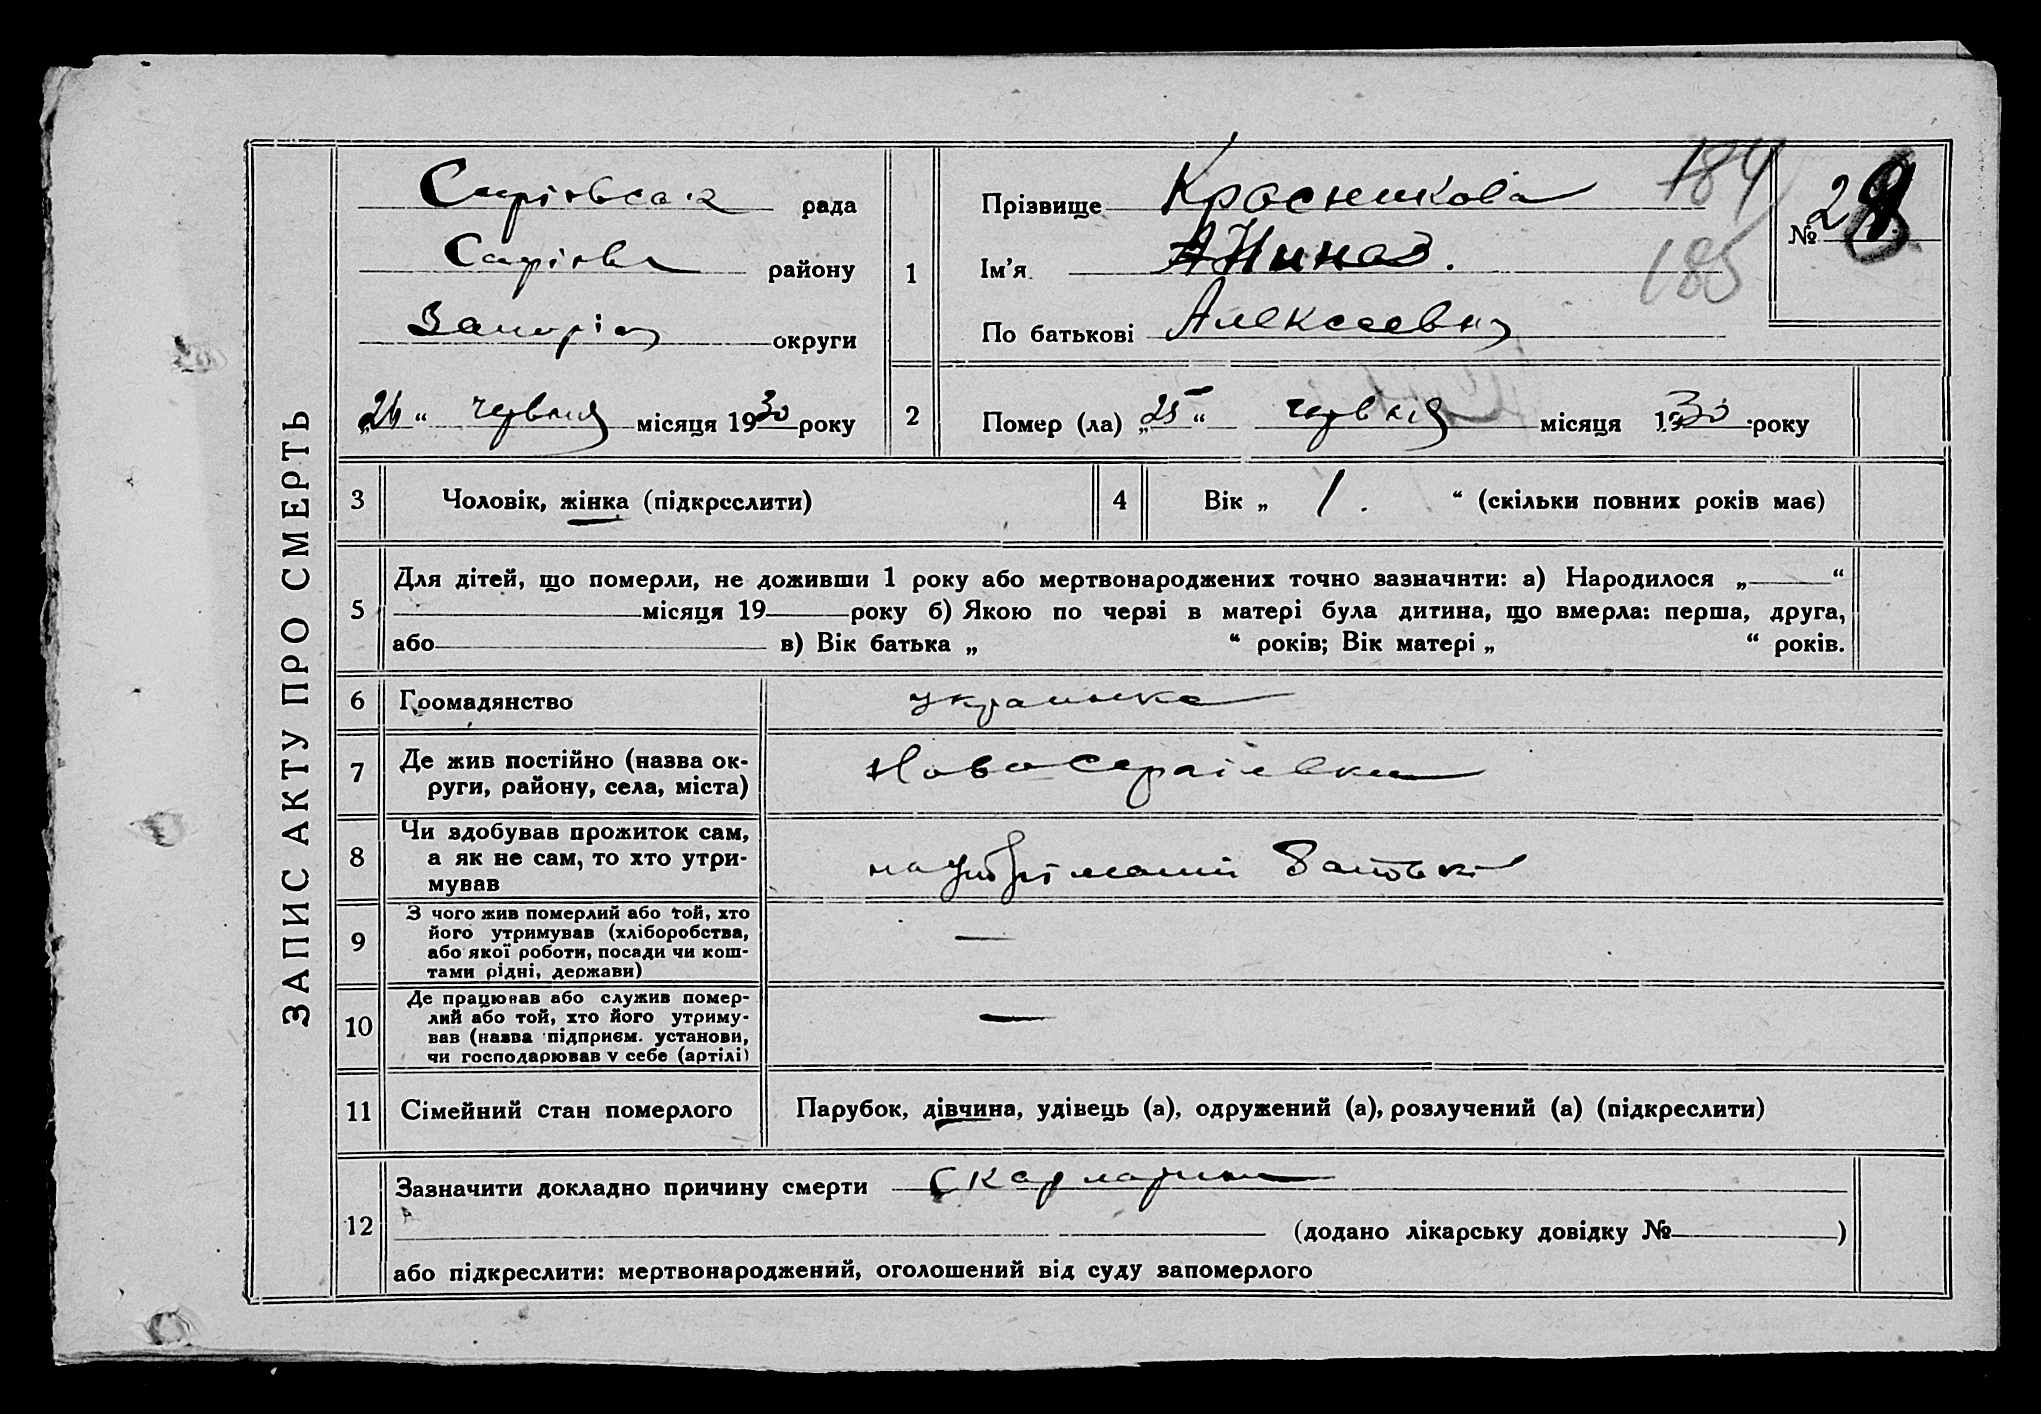 ЗАПИС АКТУ ПРО СМЕРТЬ
рада
району
округи
„26“ червня місяця 1930 року
1
Прізвище Красникова 184
№ 28
Ім’я 185
По батькові Алексеевна
2 Помер (ла) „25“ червня місяця 1930 року
3 Чоловік, жінка (підкреслити)
4 Вік „ 1. “ (скільки повних років має)
5 Для дітей, що померли, не доживши 1 року або мертвонароджених точно зазначити: а) Народилося „ “
місяця 19 року б) Якою по черзі в матері була дитина, що вмерла: перша, друга,
або в) Вік батька „ “ років; Вік матері „ “ років.
6 Громадянство украинка
7 Де жив постійно (назва ок-
руги, району, села, міста)
8 Чи здобував прожиток сам,
а як не сам, то хто утри-
мував
9 З чого жив померлий або той, хто
його утримував (хліборобства,
або якої роботи, посади чи кош-
тами рідні, держави) —
10 Де працював або служив помер-
лий або той, хто його утриму-
вав (назва підприєм. установи,
чи господарював у себе (артілі) —
11 Сімейний стан померлого Парубок, дівчина, удівець (а), одружений (а), розлучений (а) (підкреслити)
12 Зазначити докладно причину смерти Скарлатина
(додано лікарську довідку № )
або підкреслити: мертвонароджений, оголошений від суду запомерлого